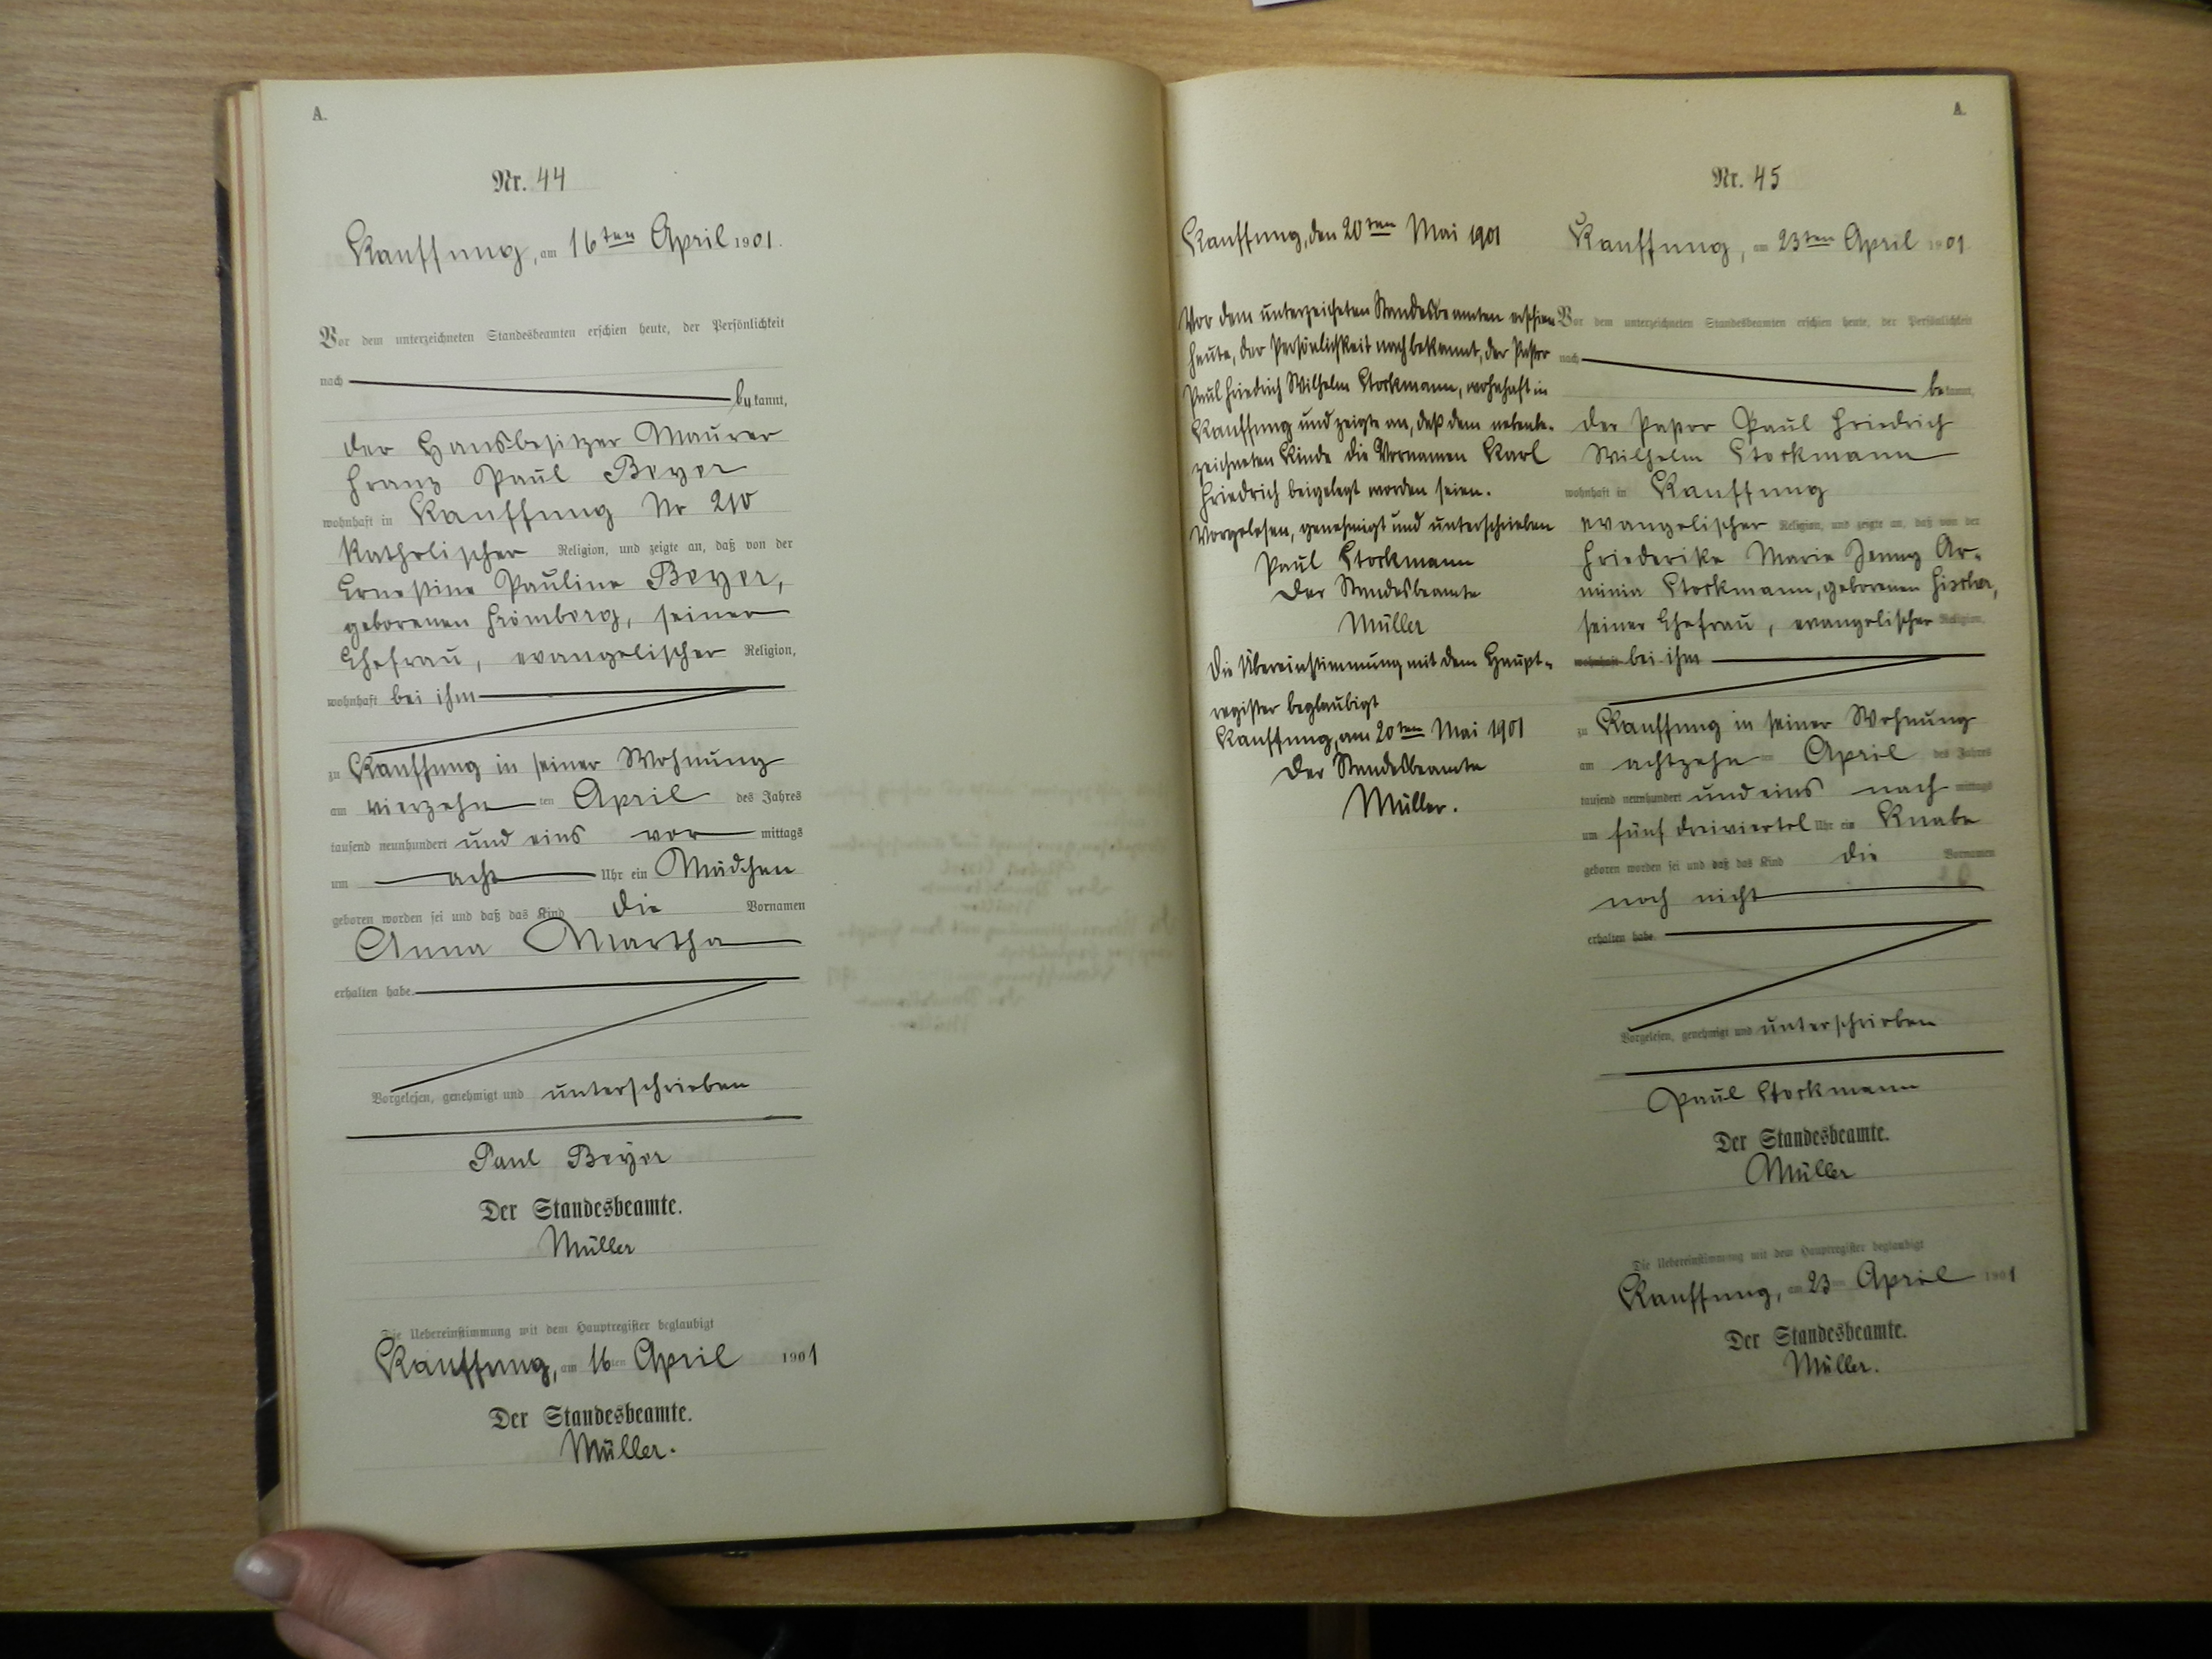 A.
Nr. 44
Kauffung, am 16ten April 1901.
Vor dem unterzeichneten Standesbeamten erschien heute, der Persönlichkeit
nach
be kannt,
der Hausbesitzer Maurer
Franz Paul Beyer
wohnhaft in Kauffung Nr 210
katholischer Religion, und zeigte an, daß von der
Ernestine Pauline Beyer,
geborenen seiner
Ehefrau, evangelischer Religion,
wohnhaft bei ihm
zu Kauffung in seiner Wohnung
am vierzehn ten April des Jahres
tausend neunhundert und eins vor mittags
um acht Uhr ein Mädchen
geboren worden sei und daß das Kind die Vornamen
Anna Martha
erhalten habe.
Vorgelesen, genehmigt und unterschrieben
Paul Beyer
Der Standesbeamte.
Müller
Die Uebereinstimmung mit dem Hauptregister beglaubigt
Kauffung, am 16ten April 1901
Der Standesbeamte.
Müller.
Kauffung, den 20ten Mai 1901
Vor dem unterzeichneten Standesbeamten erschien
heute, der Persönlichkeit nach bekannt, der Pastor
Paul Friedrich Wilhelm Stockmann, wohnhaft in
Kauffung und zeigte an, daß dem nebenbe-
zeichneten Kinde die Vornamen Karl
Friedrich beigelegt worden seien.
Vorgelesen, genehmigt und unterschrieben
Paul Stockmann
Der Standesbeamte
Müller
Die Übereinstimmung mit dem Haupt-
register beglaubigt
Kauffung, am 20ten Mai 1901
Der Standesbeamte
Müller.
A.
Nr. 45
Kauffung, am 23ten April 1901
Vor dem unterzeichneten Standesbeamten erschien heute, der Persönlichkeit
nach
be kannt,
der Pastor Paul Friedrich
Wilhelm Stockmann
wohnhaft in Kauffung
evangelischer Religion, und zeigte an, daß von der
Friederike Marie Jenny Ar-
minia Stockmann, geborenen
seiner Ehefrau, evangelischer Religion,
wohnhaft bei ihm
zu Kauffung in seiner Wohnung
am achtzehn ten April des Jahres
tausend neunhundert und eins nach mittags
um fünf dreiviertel Uhr ein Knabe
geboren worden sei und daß das Kind die Vornamen
noch nicht
erhalten habe.
Vorgelesen, genehmigt und unterschrieben
Paul Stockmann
Der Standesbeamte.
Müller
Die Uebereinstimmung mit dem Hauptregister beglaubigt
Kauffung, am 23ten April 1901
Der Standesbeamte.
Müller.